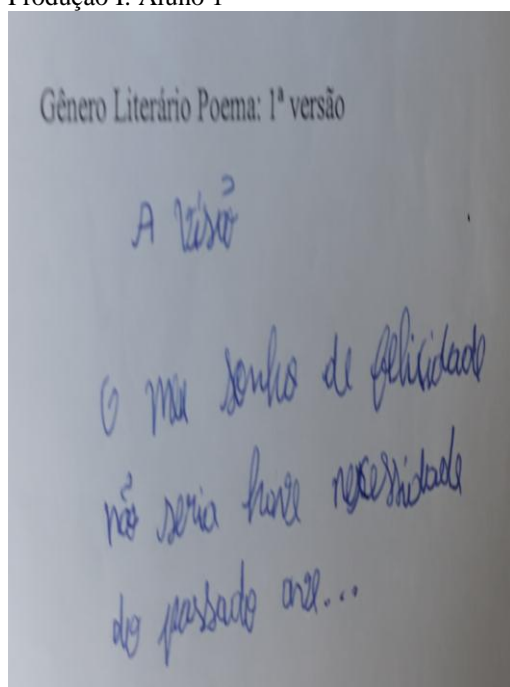 Produção I: Aluno 1
Gênero Literário Poema: 1ª versão
A Visão
O meu sonho de felicidade
não seria necessidade
do passado